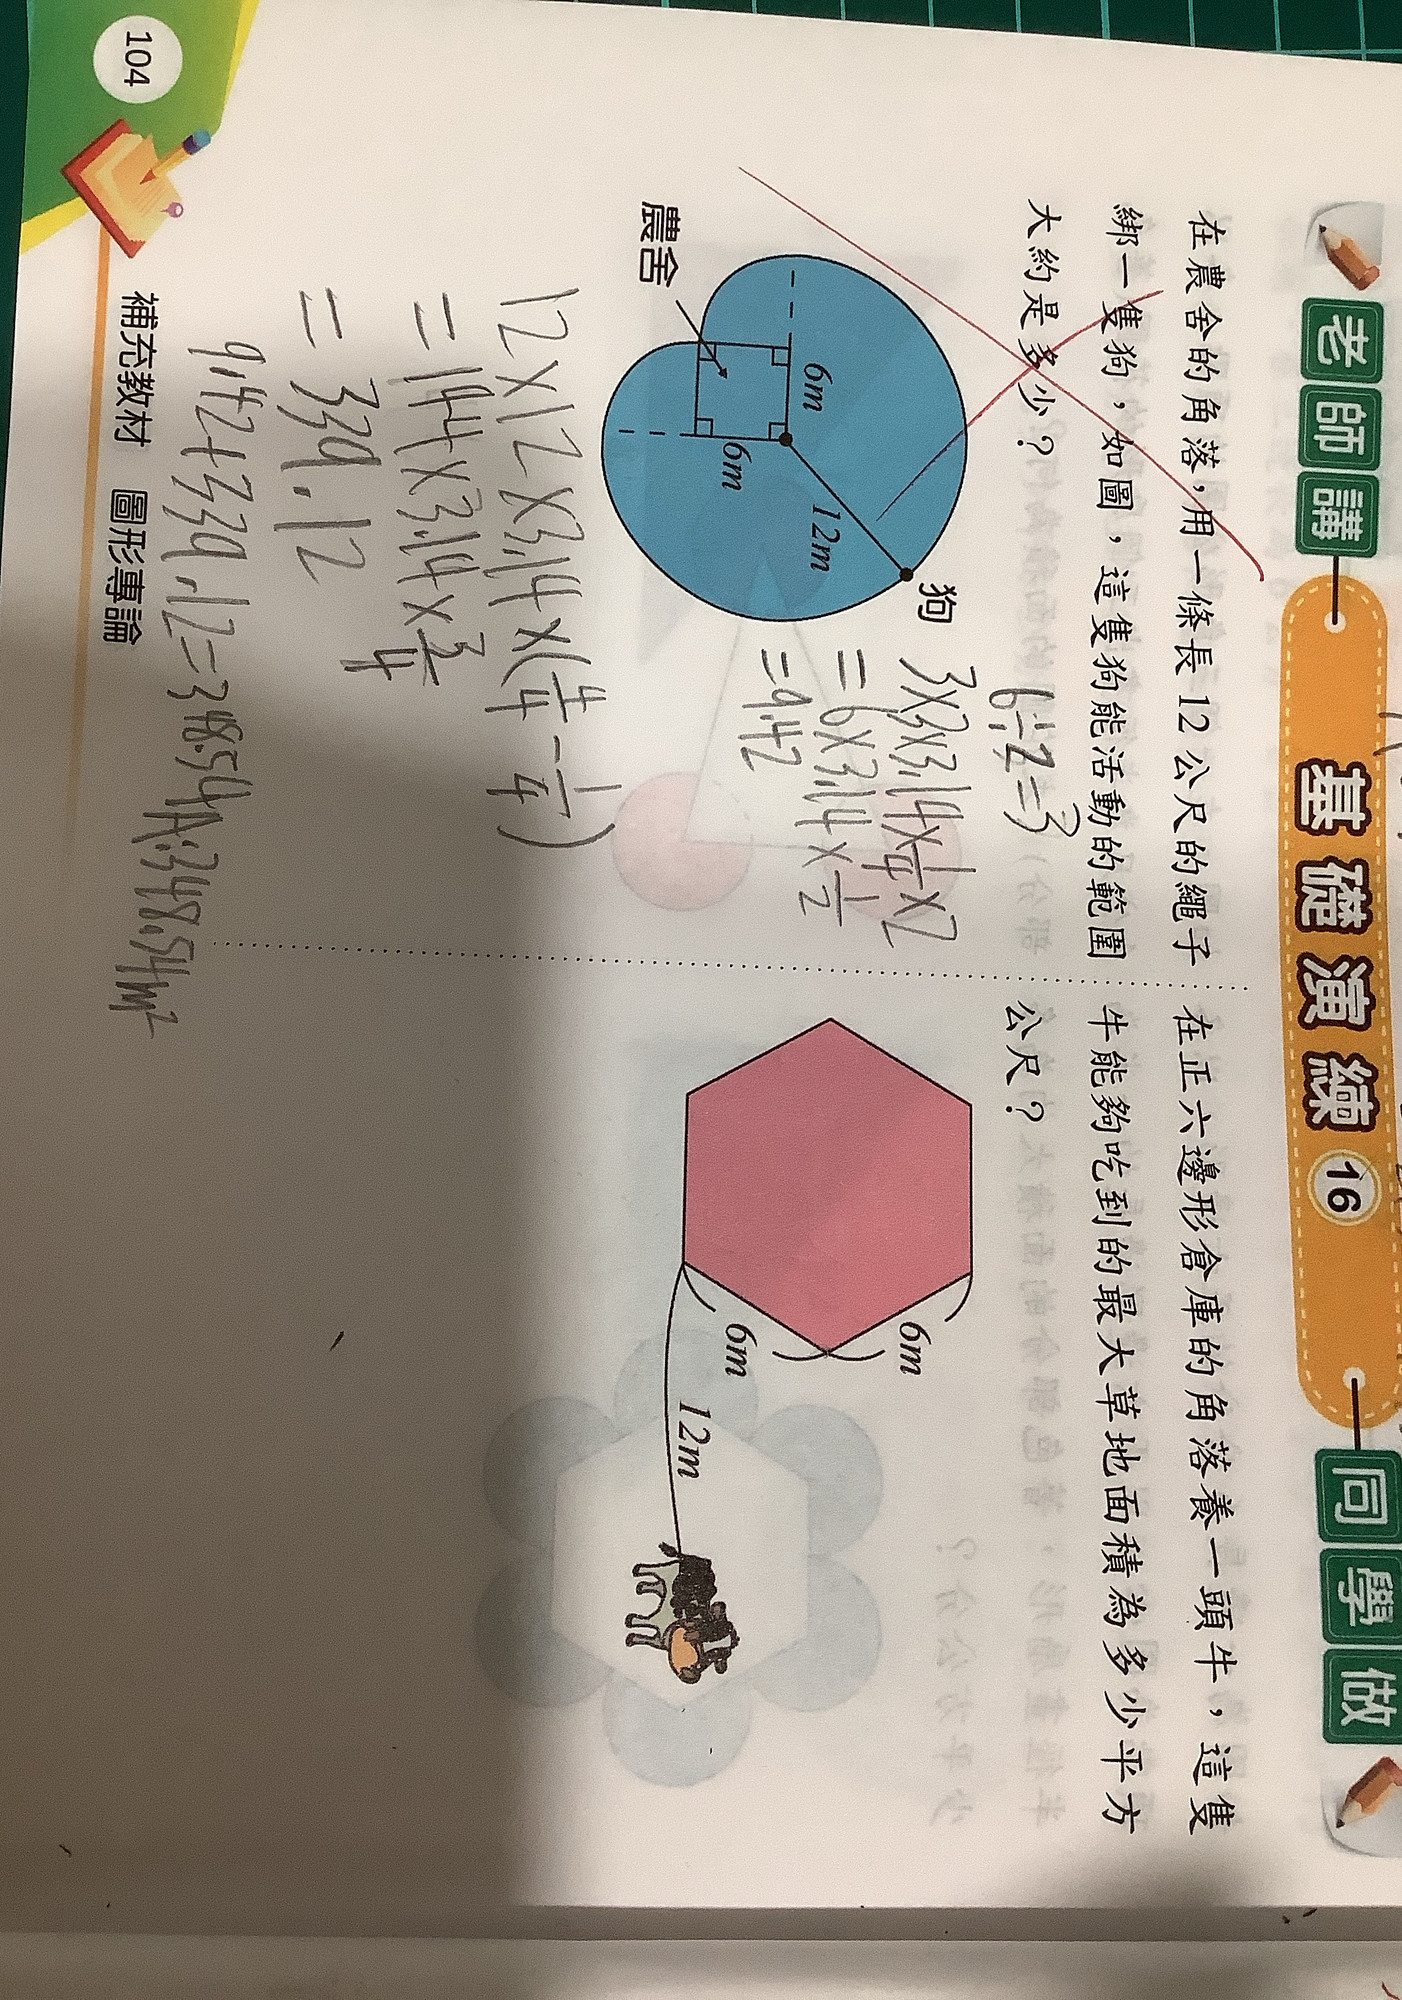 老師講
基礎演練 16
同學做
在農舍的角落，用一條長 12 公尺的繩子
綁一隻狗，如圖，這隻狗能活動的範圍
大約是多少？
農舍
6m
6m
12m
狗
6÷2=3
3×3×3.14×1/4×2
=6×3.14×1/2
=9.42
12×12×3.14×(4/4-1/4)
=144×3.14×3/4
=339.12
9.42+339.12=348.54 A:348.54m²
在正六邊形倉庫的角落養一頭牛，這隻
牛能夠吃到的最大草地面積為多少平方
公尺？
6m
6m
12m
104
補充教材 圖形專論